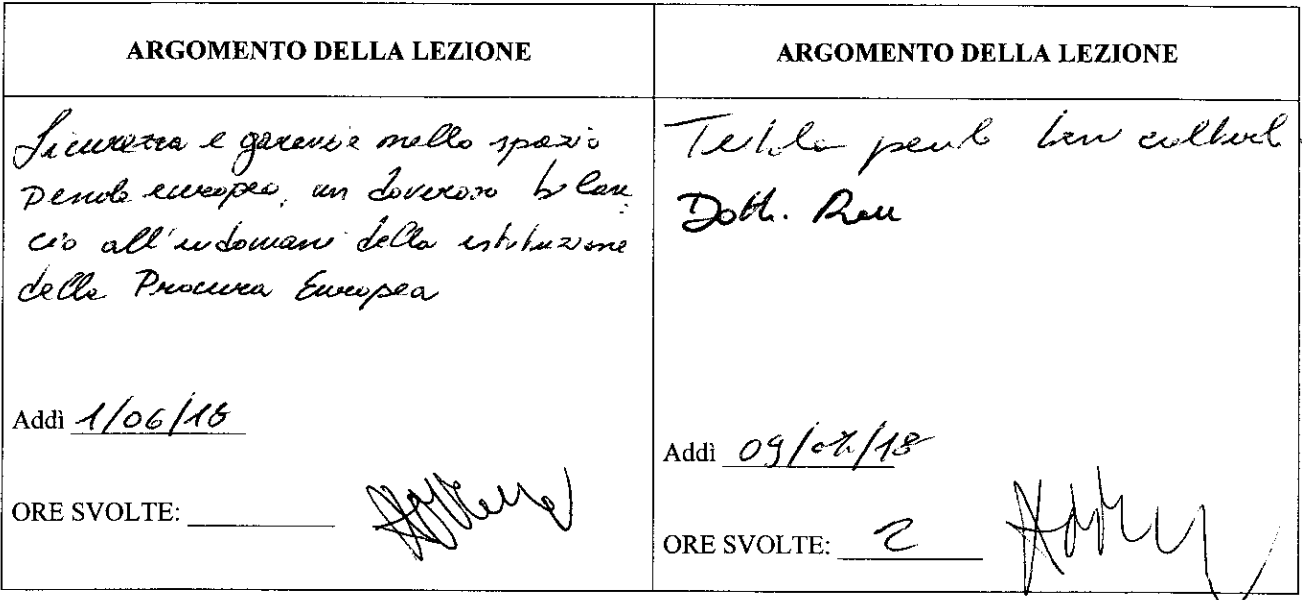 ARGOMENTO DELLA LEZIONE
Sicurezza e garanzie nello spazio
penale europeo, un doveroso bilan
cio all'indomani della istituzione
della Procura Europea
Addì 1/06/18
ORE SVOLTE:
ARGOMENTO DELLA LEZIONE
Tutela
Dott.
Addì 09/07/18
ORE SVOLTE: 2